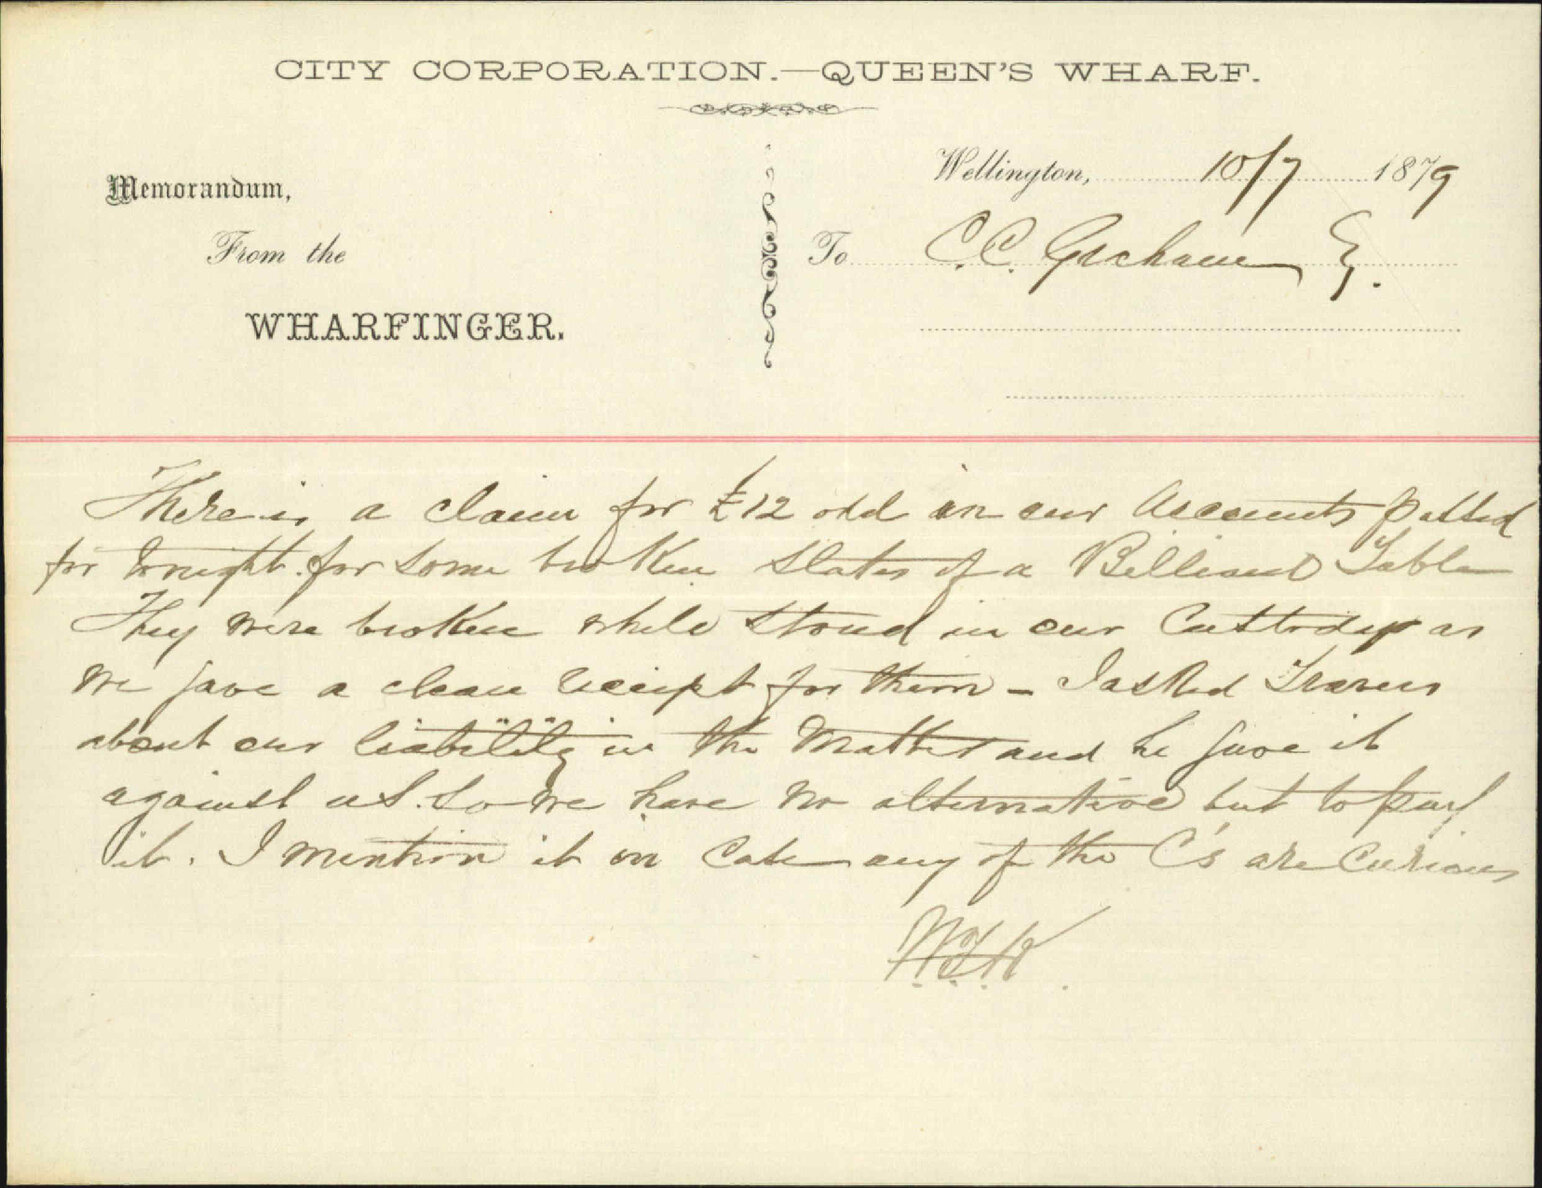 CITY CORPORATION.—QUEEN'S WHARF.
Memorandum,
From the
WHARFINGER.
Wellington, 10/7 1879
To C.C. Graham Esq.
There is a claim for £12 odd in our Accounts passed
for tonight. for some broken Slates of a Billiard Table
They were broken while stored in our Custody as
we gave a clean receipt for them – I asked Travers
about our liability in the Matter and he gave it
against us. So we have no alternative but to pay
it. I mention it in case any of the C's are Curious